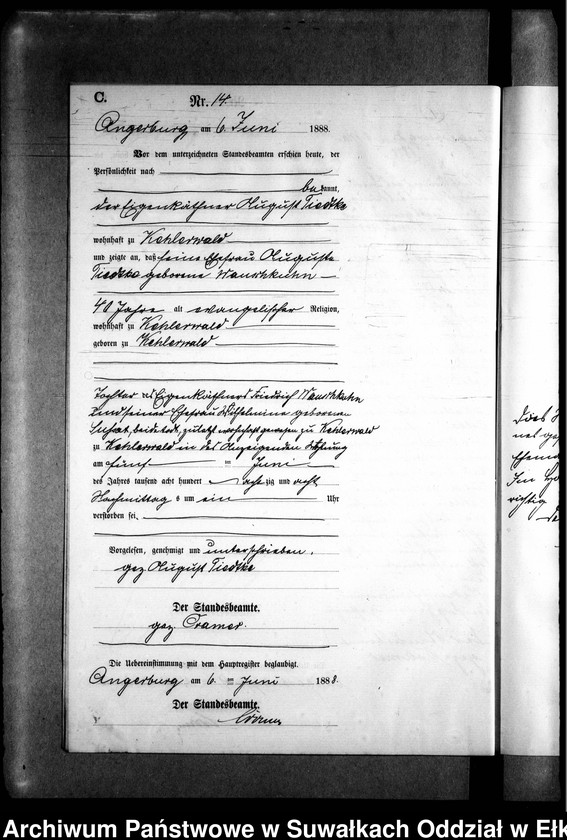 C.
Nr. 14.
Angerburg, am 6. Juni 1888.
Vor dem unterzeichneten Standesbeamten erschien heute, der
Persönlichkeit nach
bekannt,
der Eigenkäthner August Tiedtke
wohnhaft zu Kehlerwald
und zeigte an, daß seine Ehefrau Auguste
Tiedtke geborene
40 Jahre alt evangelischer Religion,
wohnhaft zu Kehlerwald
geboren zu Kehlerwald
Tochter des Eigenkäthners Friedrich
und seiner Ehefrau Wilhelmine geborenen
beide todt, zuletzt wohnhaft gewesen zu Kehlerwald
zu Kehlerwald in des Anzeigenden Wohnung
am fünf ten Juni
des Jahres tausend acht hundert achtzig und acht
Nachmittag s um ein Uhr
verstorben sei.
Vorgelesen, genehmigt und unterschrieben.
gez August Tiedtke
Der Standesbeamte.
gez. Cramer.
Die Uebereinstimmung mit dem Hauptregister beglaubigt.
Angerburg am 6. ten Juni 1888.
Der Standesbeamte.
Cramer
das
richtig
Archiwum Państwowe w Suwałkach Oddział w Ełk